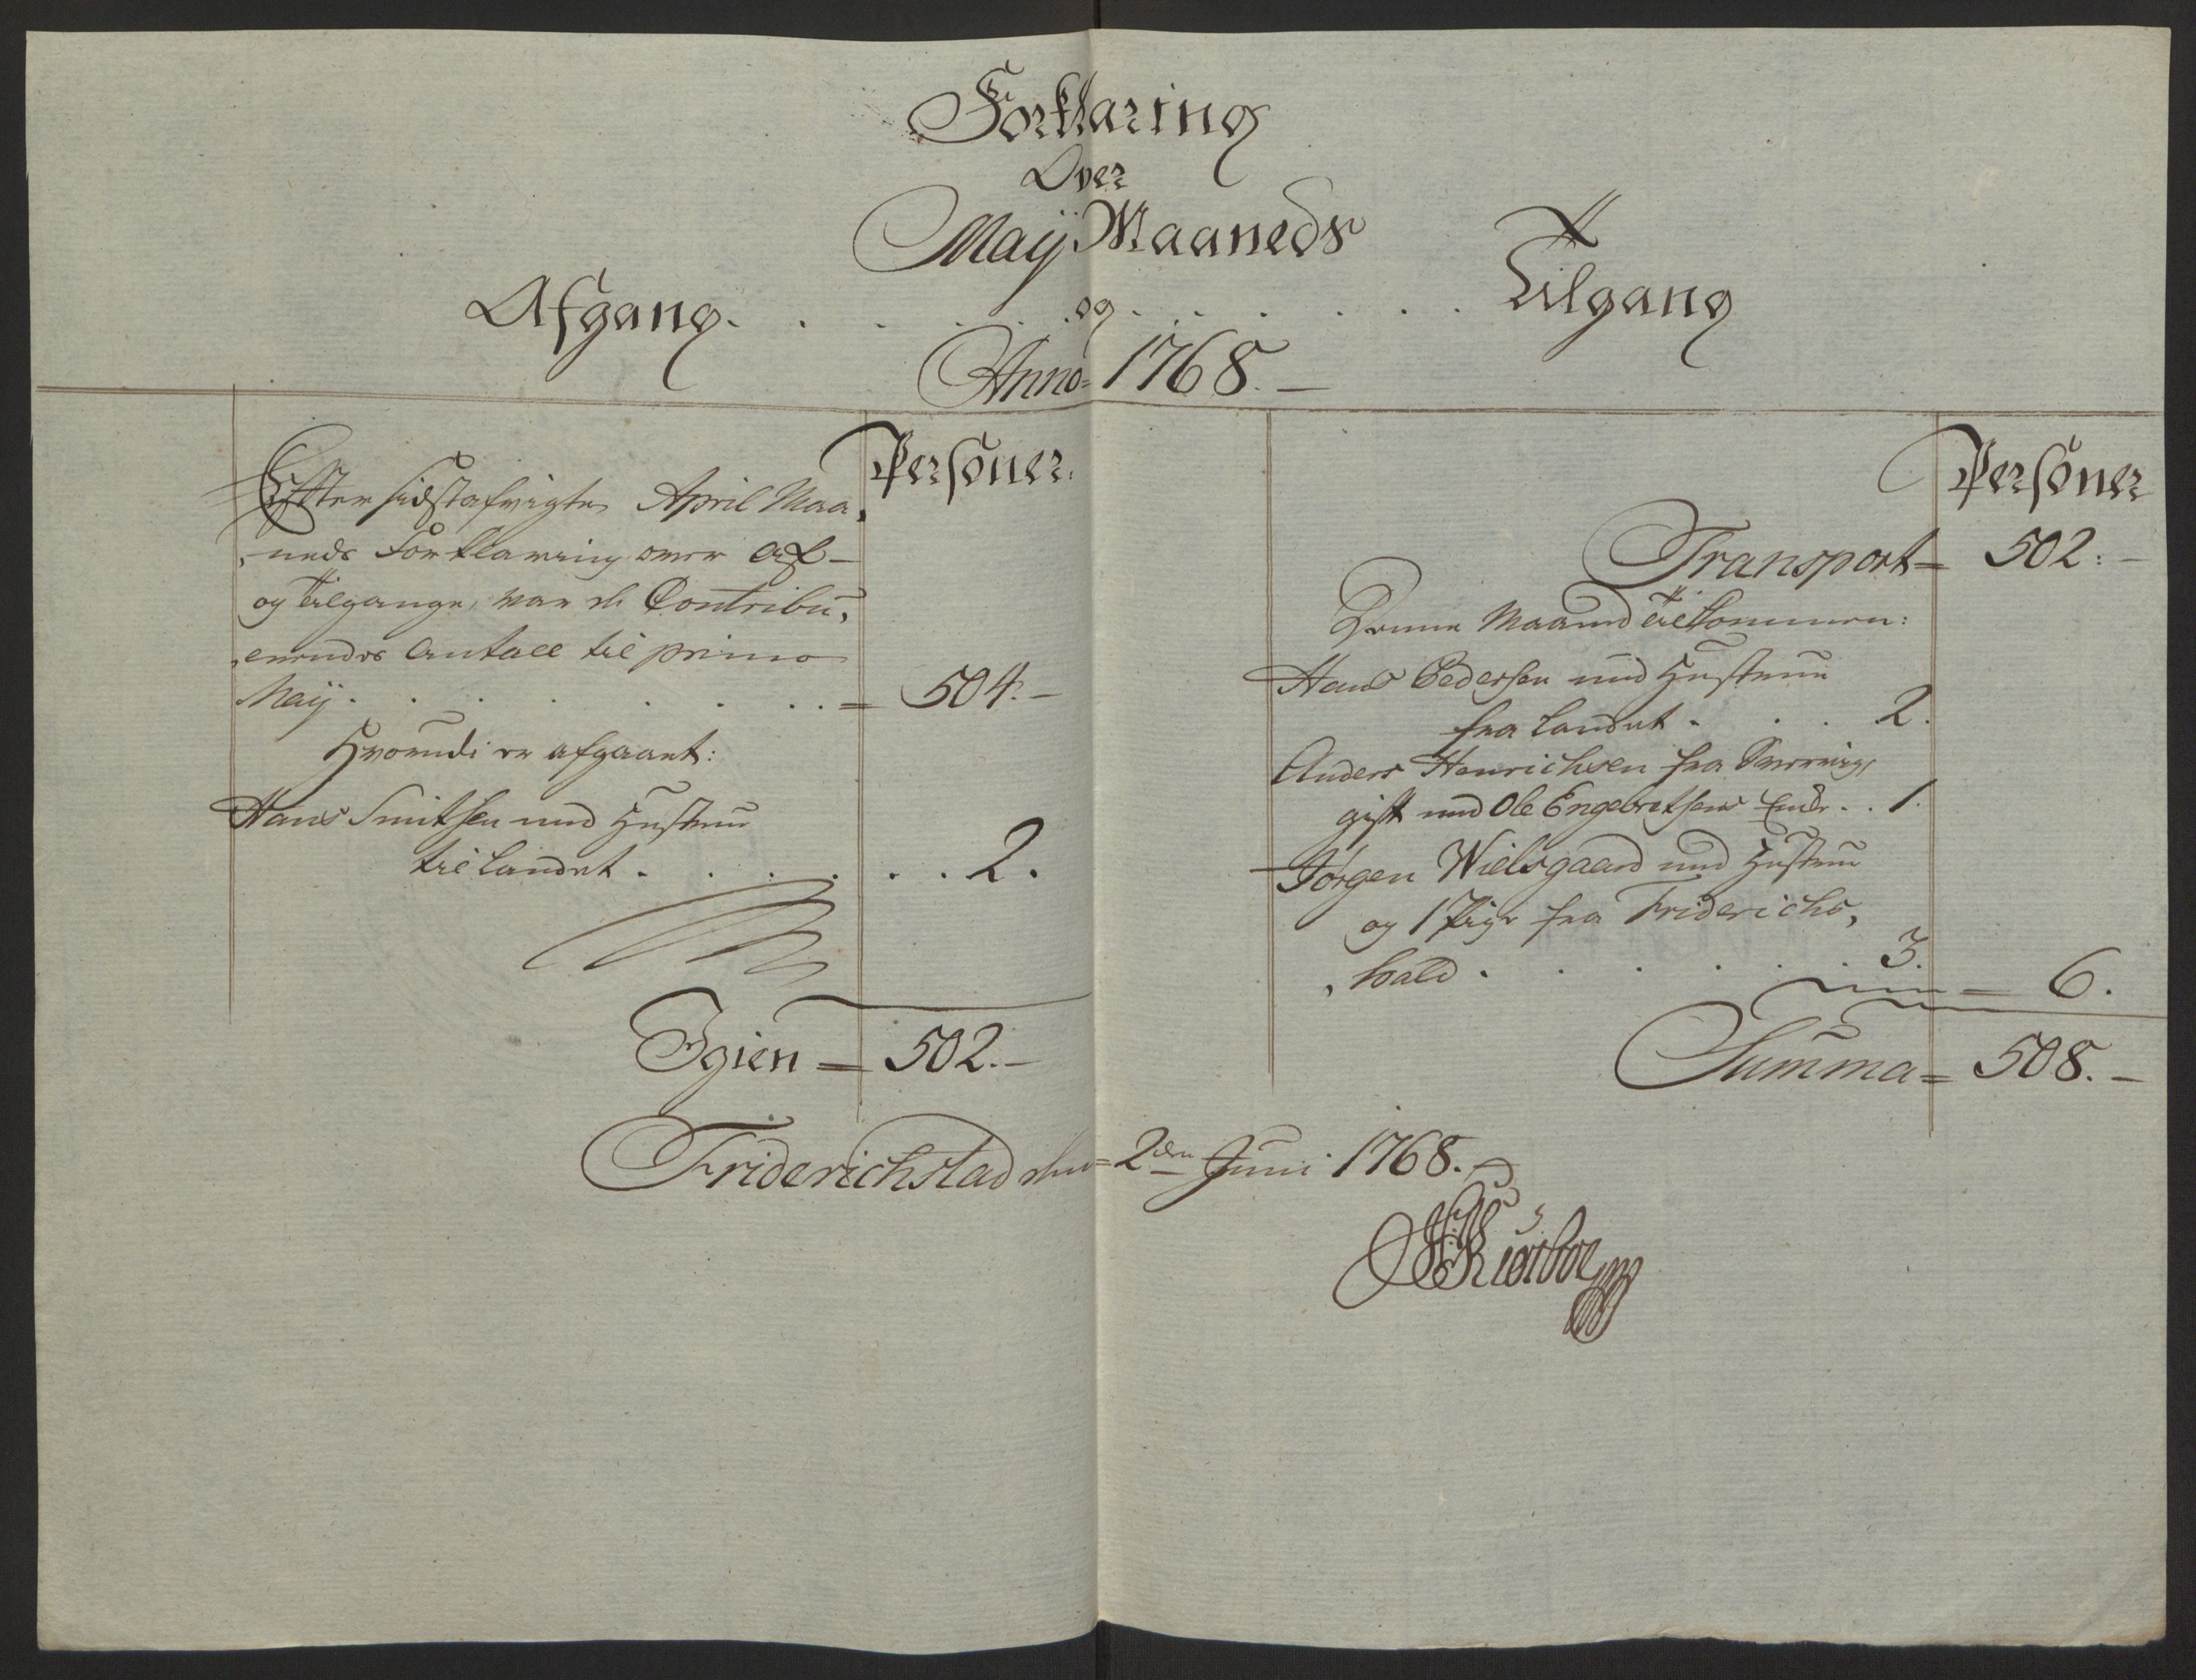 Forklaring
Over
Maÿ Maaneds
Afgang . . . . . og . . . . . Tilgang
Anno 1768. —
Personer.
Efter sidstafvigte April Maa,
,neds Forklaring over Af-
og Tilgange, var de Contribu,
,erendes Antall til primo
Maÿ . . . . . . . = 504. —
Hvorudi er afgaaet:
Hans Smitsen med Hustrue
til Landet . . . . . . 2.
Igien = 502. —
Personer
Transport = 502: —
Denne Maaned tilkommen:
Hans Pedersen med Hustrue
fra Landet . . . 2.
Anders Henrichsen fra
gift med Ole Engebretsens Enke . . 1.
Jørgen Wielsgaard med Hustrue
og 1 Pige fra Friderichs,
,hald . . . . . . 3. = 6.
Summa = 508. —
Friderichstad den 2den Juni 1768.